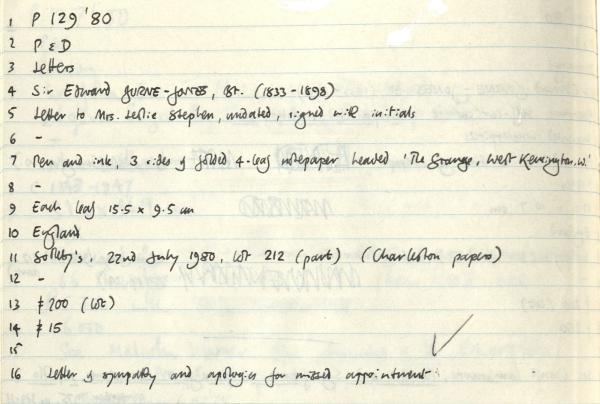 1 P 129 '80
2 P & D
3 Letters
4 Sir Edward BURNE-JONES, Bt. (1833-1898)
5 Letter to Mrs. Leslie Stephen, undated, signed with initials
6 -
7 Pen and ink, 3 sides of folded 4-leaf notepaper headed 'The Grange, West Kensington, W.'
8 -
9 Each leaf 15.5 x 9.5 cm
10 England
11 Sotheby's, 22nd July 1980, lot 212 (part) (Charleston papers)
12 -
13 £200 (lot)
14 £15
15
16 Letter of sympathy and apologies for missed appointment